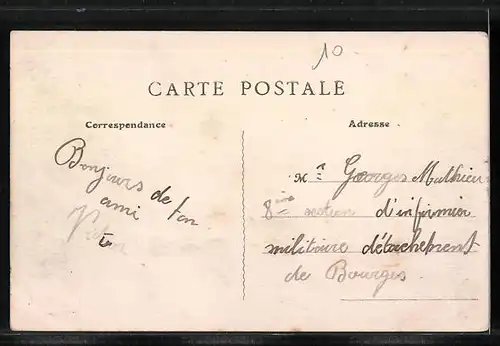 10
CARTE POSTALE
Correspondance
Adresse
Bonjours
de ton
ami
Mr Georges Mathieu
8ième section d'infirmier
militaire détachement
de Bourges